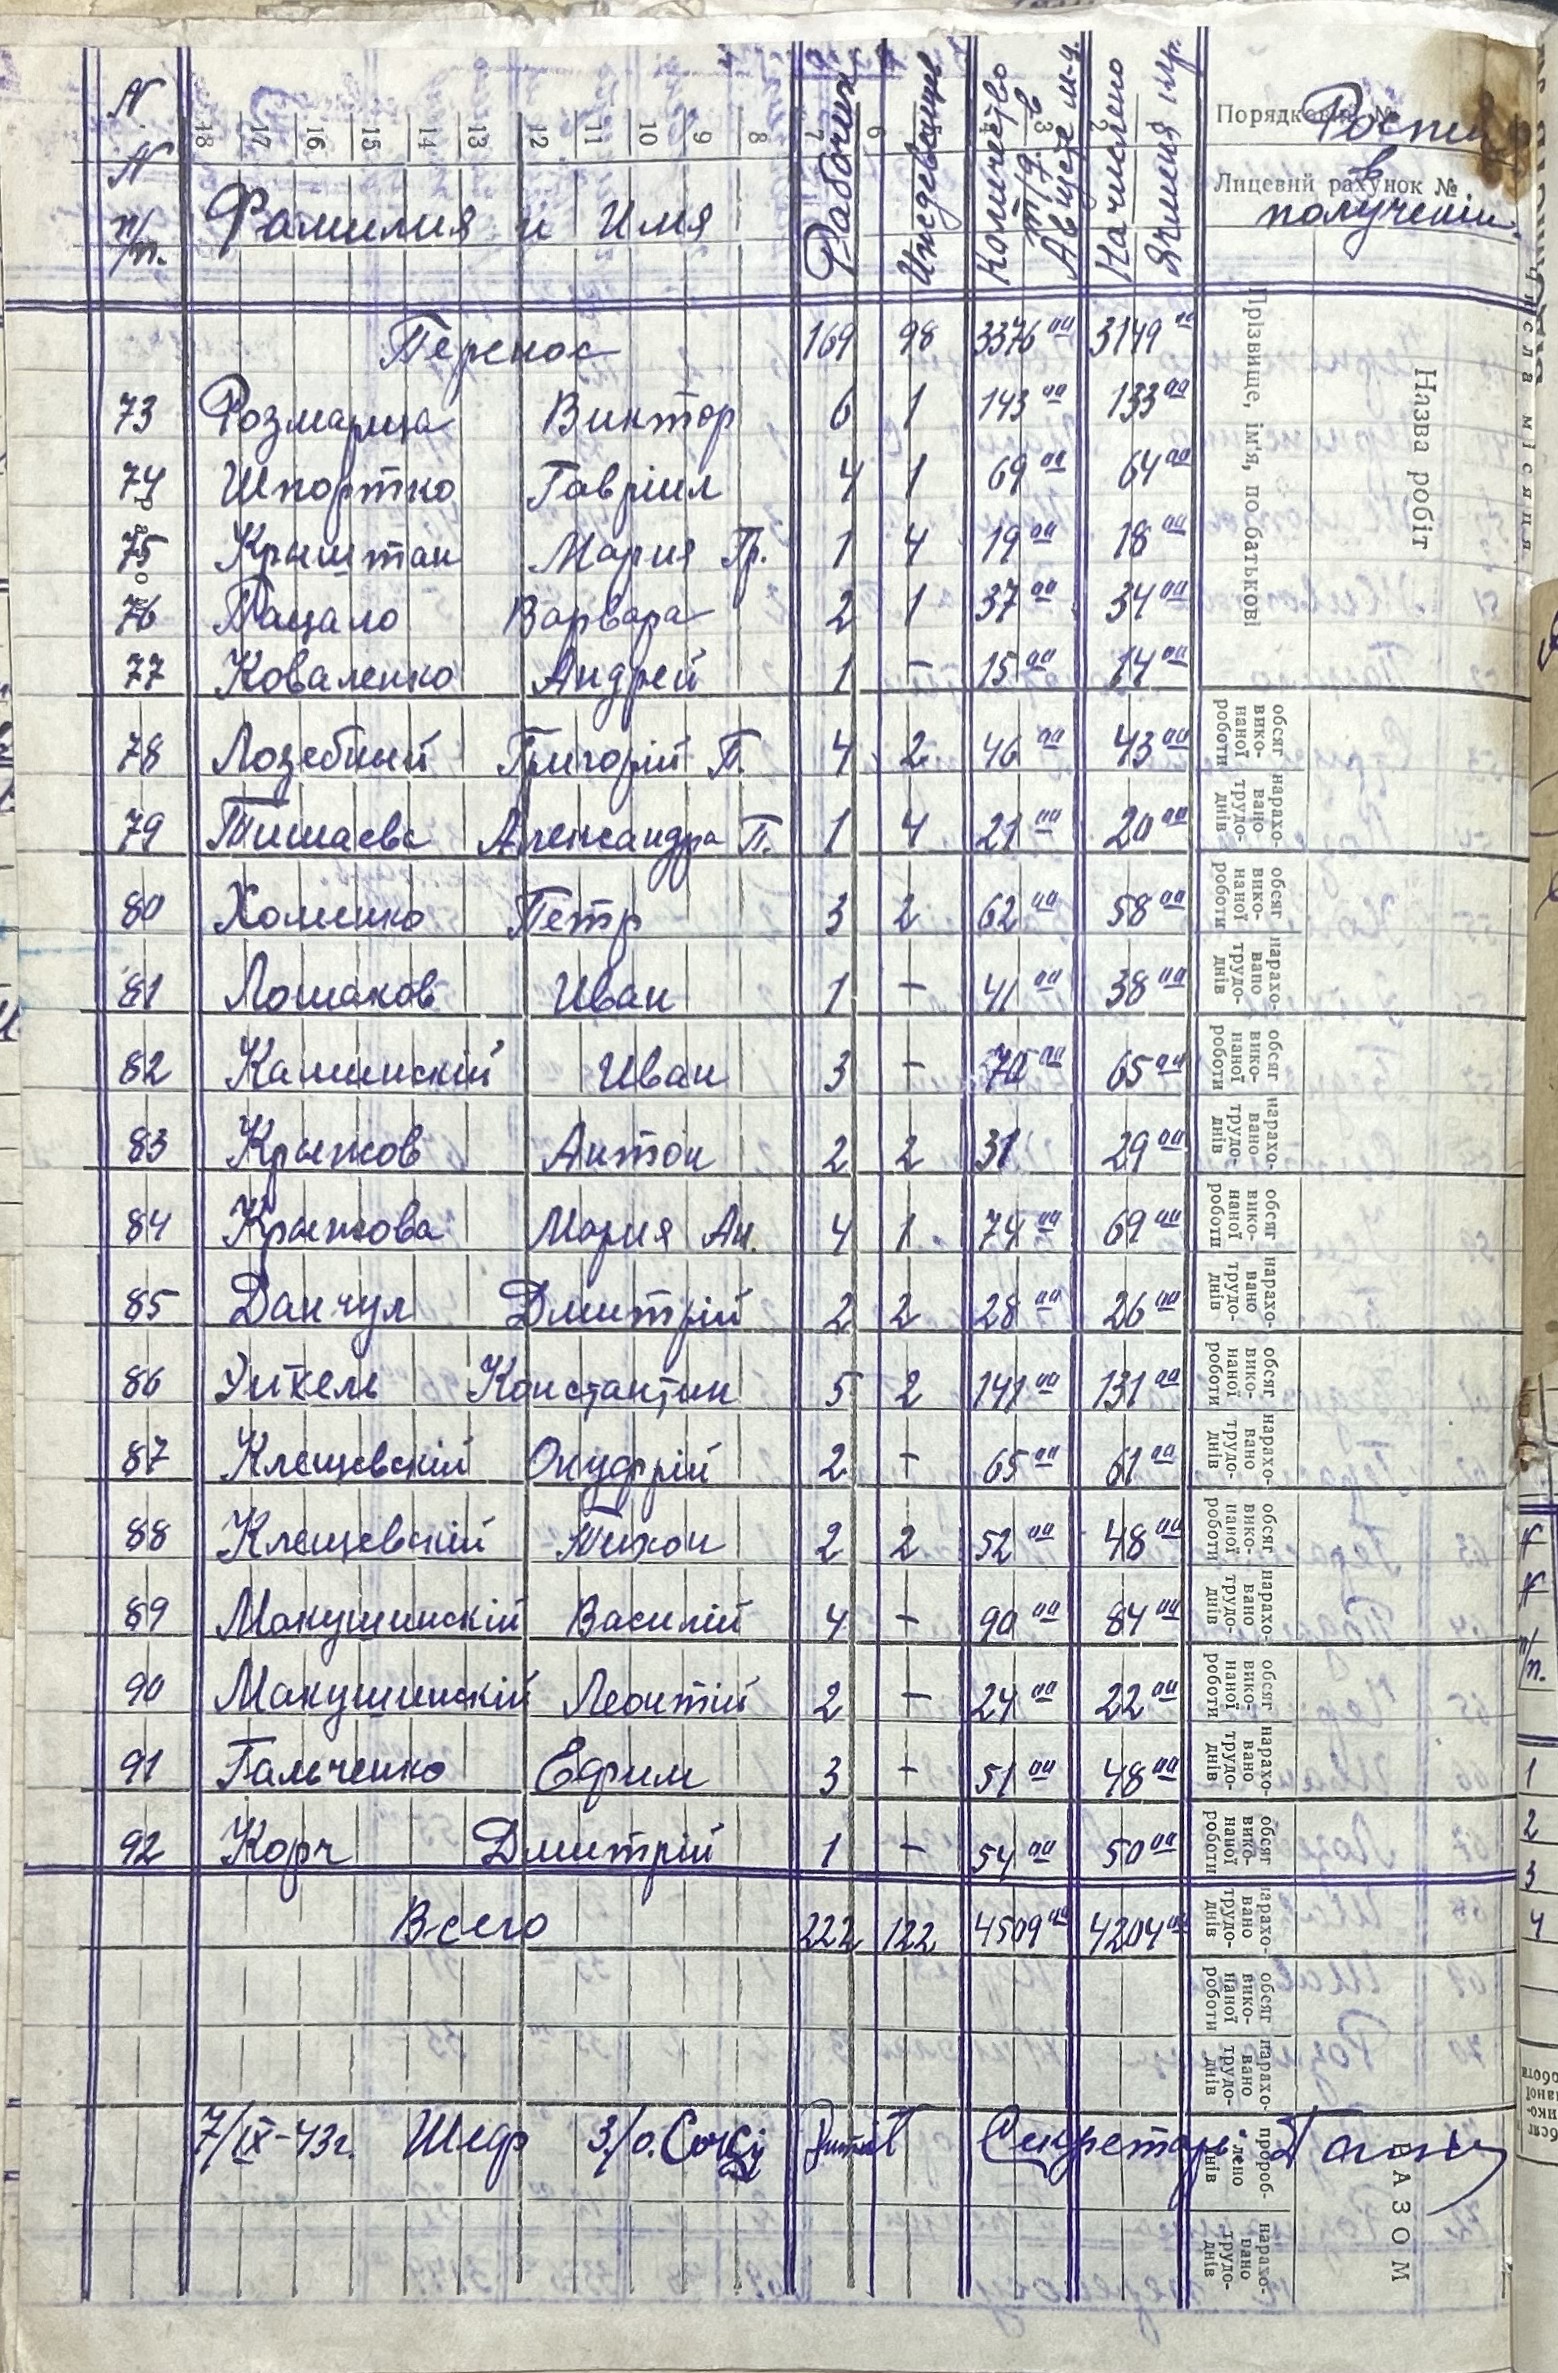 N N п/п. Фамилия и Имя Рабочих Иждевенцев Количество т/д. в Августе м-ц. Начислено Ячменя кгр. Роспис в получении.
18 17 16 15 14 13 12 11 10 9 8 7 6 3
Порядковий №
Лицевий рахунок №
Прізвище, ім'я, по батькові
Назва робіт
числа місяця
Перенос 169 98 3376 00 3149 00
73 Розмарица Виктор 6 1 143 00 133 00
74 Шпортко Гавріил 4 1 69 00 64 00
75 Крыштан Мария Гр. 1 4 19 00 18 00
76 Пацало Варвара 2 1 37 00 34 00
77 Коваленко Андрей 1 – 15 00 14 00
78 Лозебный Григорій П. 4 2 46 00 43 00
79 Тишаева Александра П. 1 4 21 00 20 00
80 Хоменко Петр 3 2 62 00 58 00
81 Лошаков Иван 1 – 41 00 38 00
82 Каминскій Иван 3 – 70 00 65 00
83 Крыжов Антон 2 2 31 29 00
84 Крыжова Мария Ан. 4 1 74 00 69 00
85 Данчул Дмитрій 2 2 28 00 26 00
86 Ункель Константин 5 2 141 00 131 00
87 Клещевскій Онуфрій 2 – 65 00 61 00
88 Клещевскій Тихон 2 2 52 00 48 00
89 Макушинскій Василій 4 – 90 00 84 00
90 Макушинскій Леонтій 2 – 24 00 22 00
91 Гальченко Ефрим 3 – 51 00 48 00
92 Корч Дмитрій 1 – 54 00 50 00
Всего 222 122 4509 00 4204 00
обсяг виконаної роботи
нараховано трудоднів
7/IX-43г. Секретарь
РАЗОМ